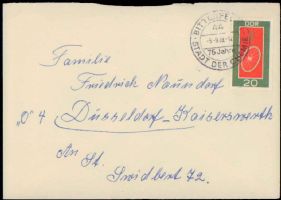 BITTERFELD
75 Jahre
STADT DER CHEMIE
DDR
20
Familie
Friedrich Naundorf
"O" 4 Düsseldorf-Kaiserswerth
An St.
Swidbert 72.